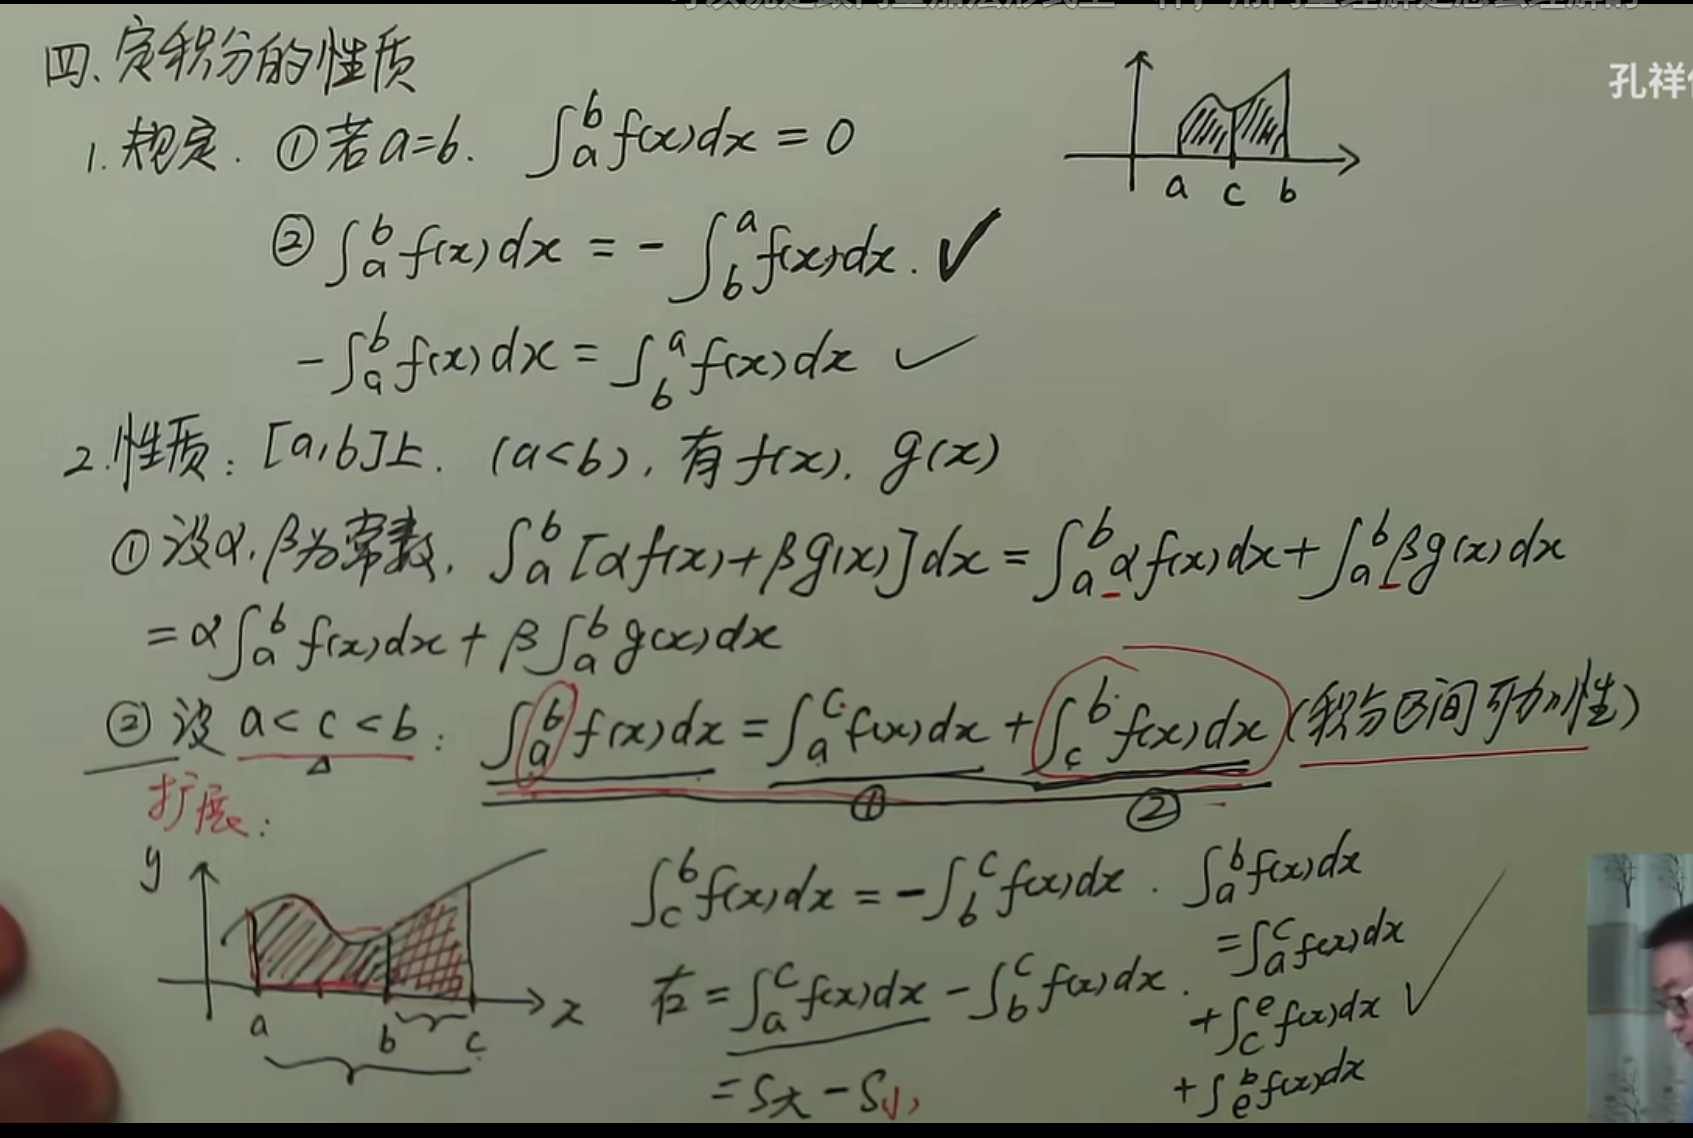 四、定积分的性质
1.规定. ①若a=b. ∫_a^b f(x)dx = 0
② ∫_a^b f(x)dx = - ∫_b^a f(x)dx. ✓
- ∫_a^b f(x)dx = ∫_b^a f(x)dx ✓
a c b
孔祥
2.性质: [a,b]上. (a<b), 有f(x). g(x)
①设α,β为常数. ∫_a^b [αf(x)+βg(x)]dx = ∫_a^b αf(x)dx + ∫_a^b βg(x)dx
= α∫_a^b f(x)dx + β∫_a^b g(x)dx
②设 a<c<b: ∫_a^b f(x)dx = ∫_a^c f(x)dx + ∫_c^b f(x)dx (积分区间可加性)
① ②
扩展:
y x
a b c
∫_c^b f(x)dx = -∫_b^c f(x)dx.
右 = ∫_a^c f(x)dx - ∫_b^c f(x)dx.
= S大 - S小
∫_a^b f(x)dx
= ∫_a^c f(x)dx
+ ∫_c^e f(x)dx ✓
+ ∫_e^b f(x)dx